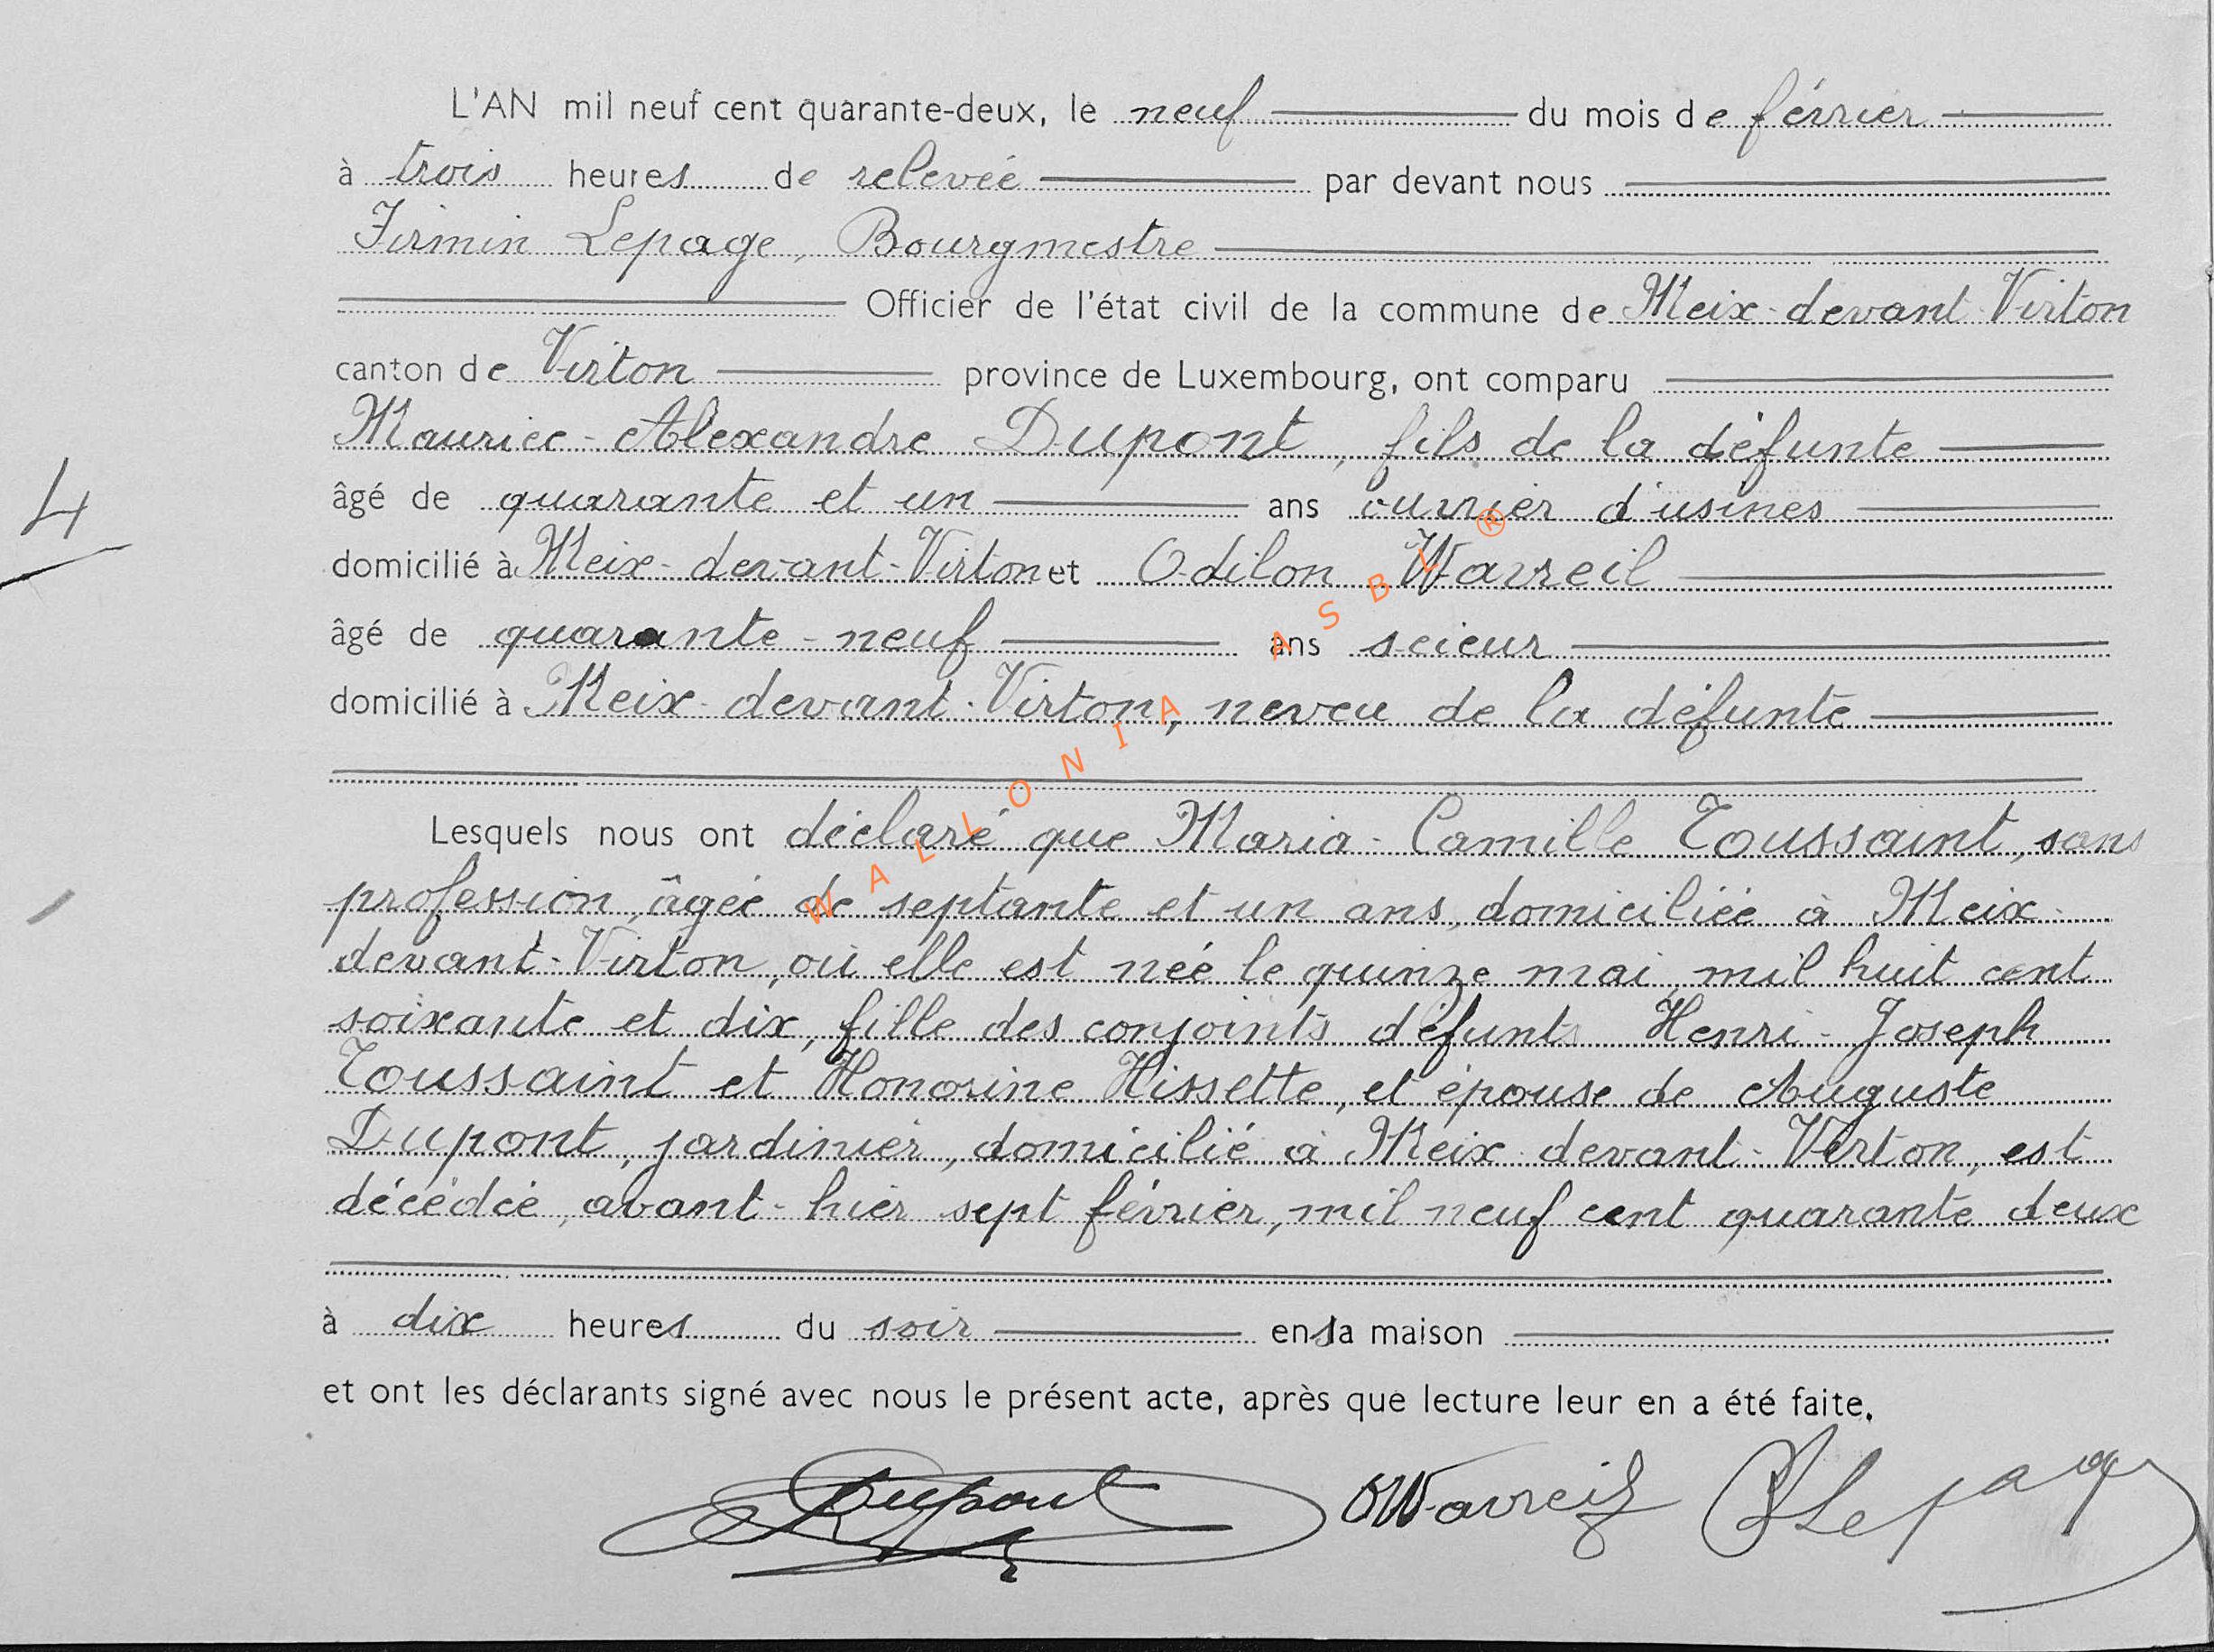 L'AN mil neuf cent quarante-deux, le neuf du mois de février
à trois heures de relevée par devant nous
Firmin Lepage, Bourgmestre
Officier de l'état civil de la commune de Meix-devant-Virton
canton de Virton province de Luxembourg, ont comparu
Maurice-Alexandre Dupont, fils de la défunte
4
âgé de quarante et un ans ouvrier d'usines
domicilié à Meix-devant-Virton et Odilon Wavreil
âgé de quarante-neuf ans scieur
domicilié à Meix-devant-Virton, neveu de la défunte
WALLONIA ASBL ®
Lesquels nous ont déclaré que Maria-Camille Toussaint, sans
profession, âgée de septante et un ans, domiciliée à Meix-
devant-Virton, où elle est née le quinze mai mil huit cent
soixante et dix, fille des conjoints défunts Henri-Joseph
Toussaint et Honorine Hissette, et épouse de Auguste
Dupont, jardinier, domicilié à Meix-devant-Virton, est
décédée, avant-hier sept février, mil neuf cent quarante deux
à dix heures du soir en sa maison
et ont les déclarants signé avec nous le présent acte, après que lecture leur en a été faite.
Dupont OWavreil FLepage